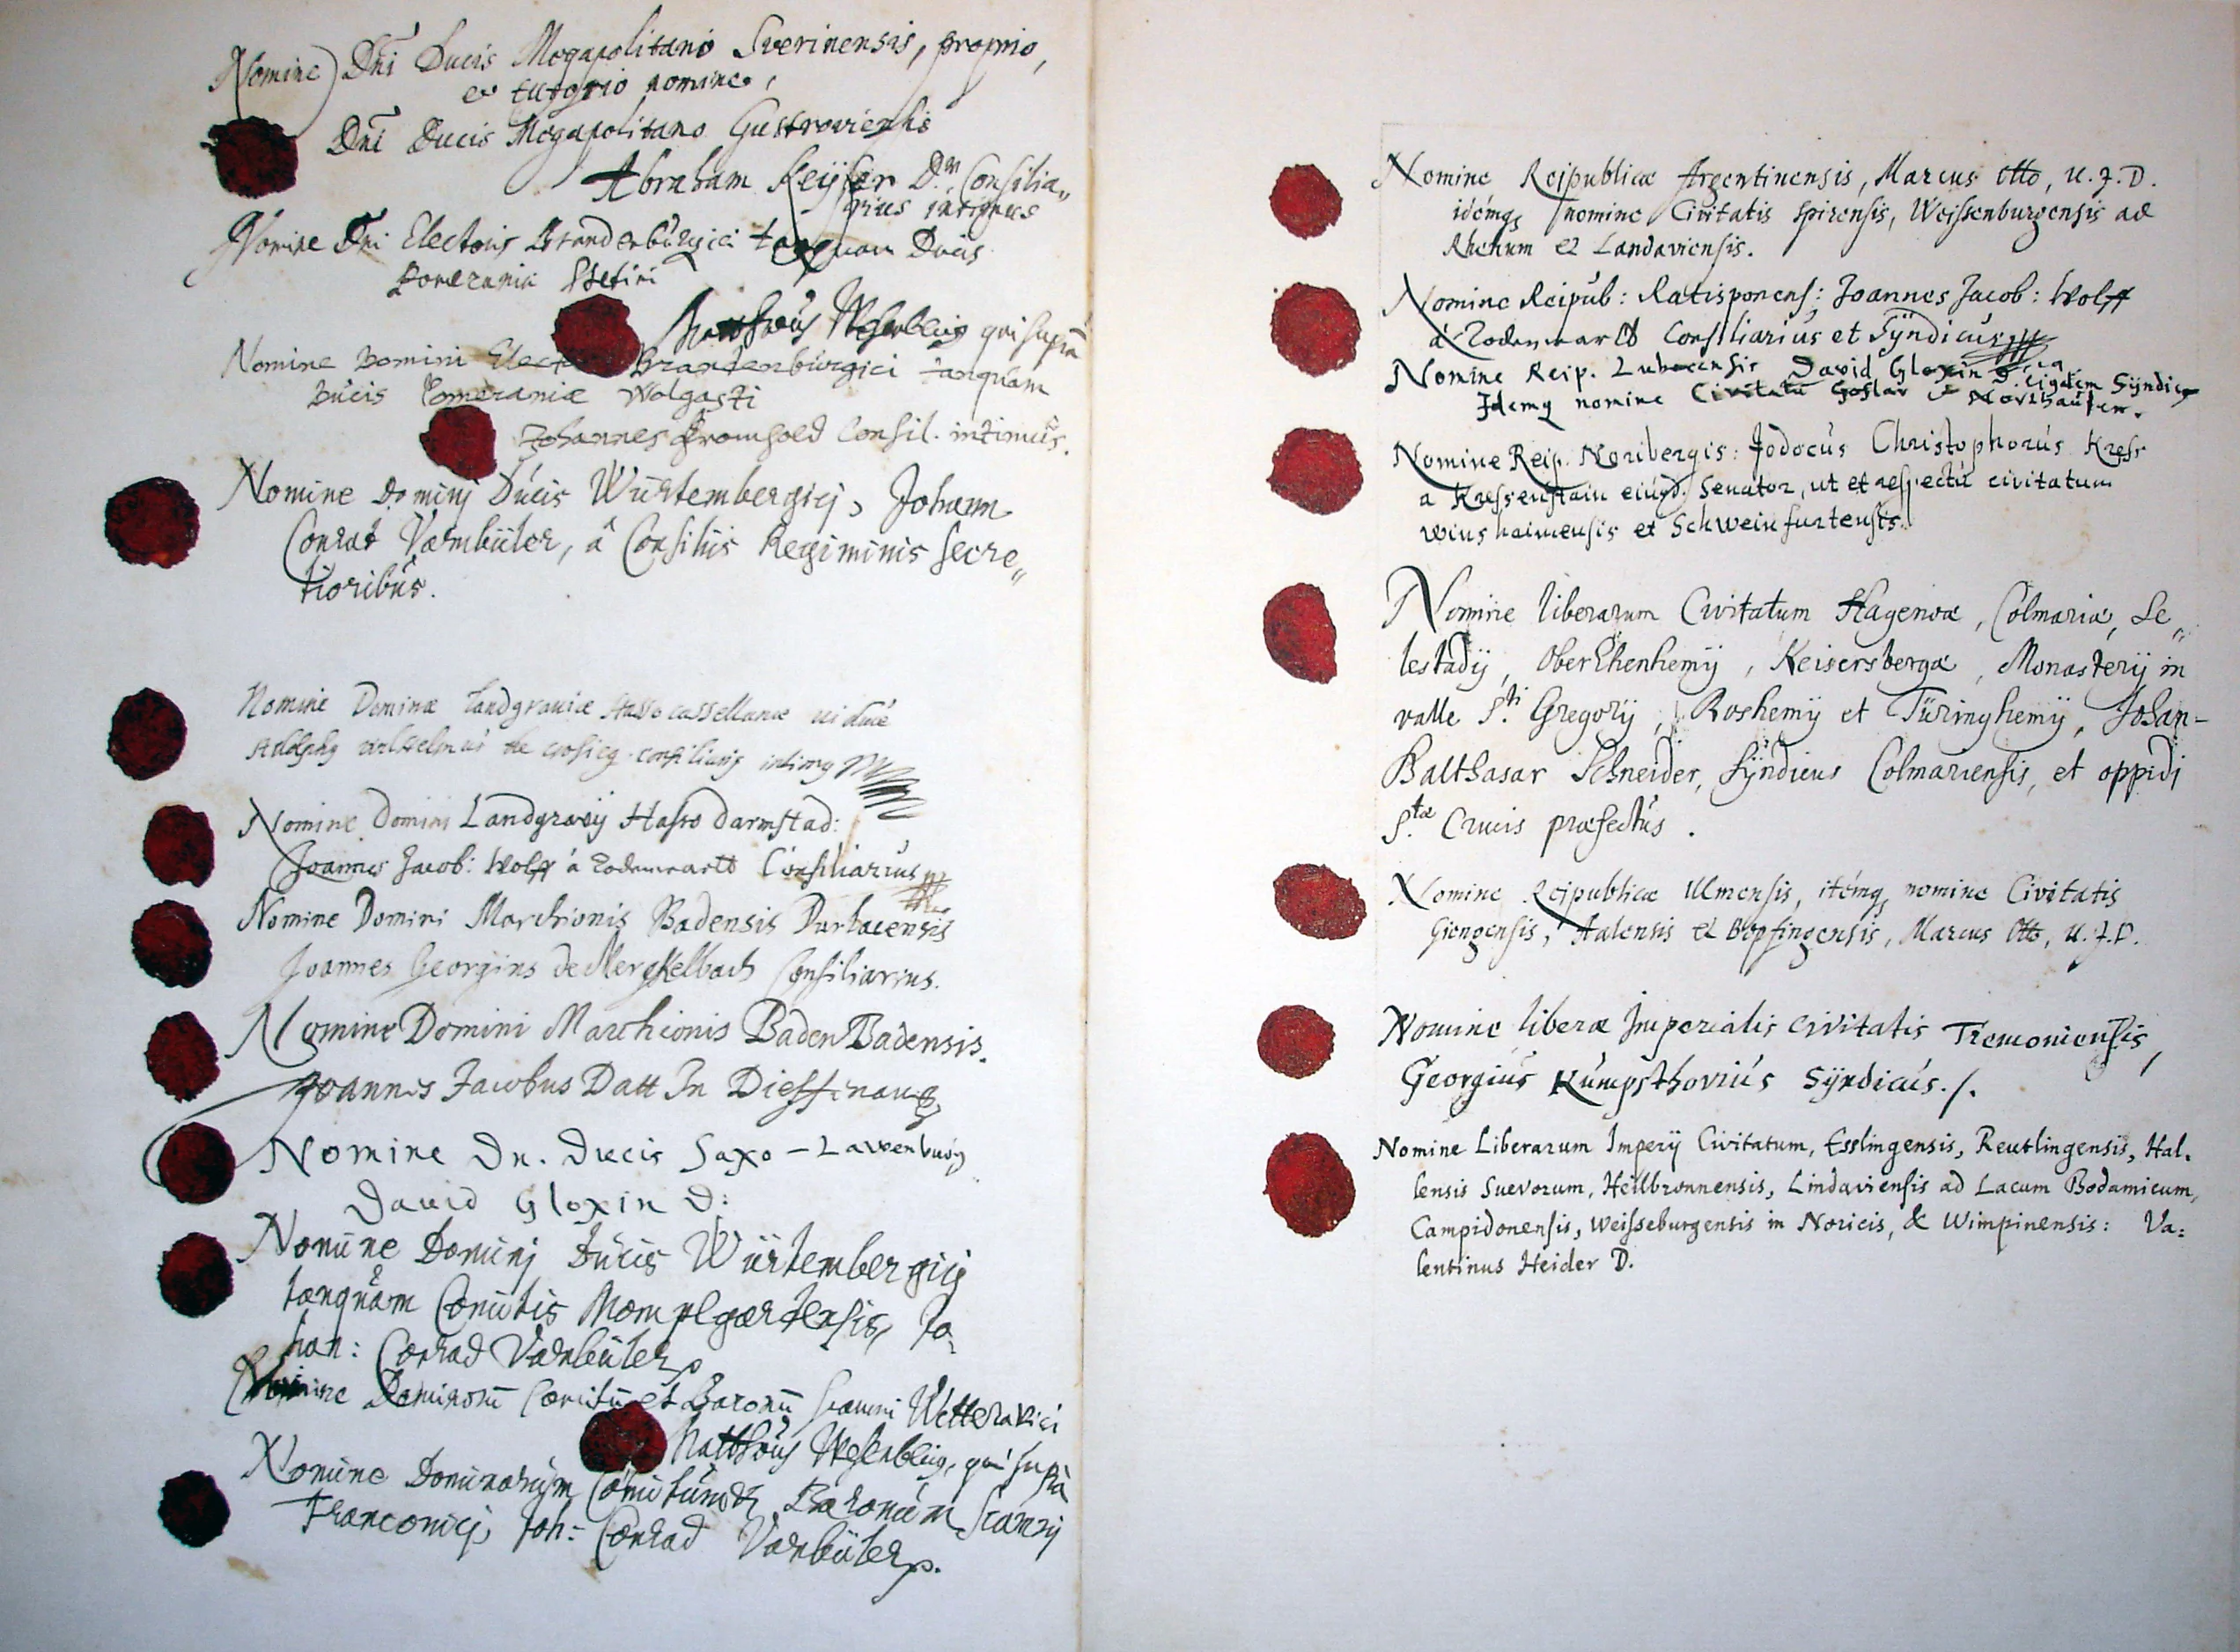 Nomine Dni Ducis Megapolitani Sverinensis, proprio,
et tutorio nomine,
Dni Ducis Megapolitano Gustroviensis
Abraham Keyser Dr. Consilia„
rius intimus
Nomine Dni Electoris Brandenburgici tanquam Ducis
Pomeraniæ Stetini
Matthæus Wesenbecius qui suprà
Nomine Domini Elect Brandenbúrgici tanquam
Ducis Pomeraniæ Wolgasti
Johannes Fromhold Consil. intimús.
Nomine Dominj Dúcis Würtembergicj, Johann
Conrat Varnbüler, â Consiliis Regiminis secre„
tioribús.
Nomine Dominæ Landgraviæ Hasso cassellanæ viduæ
Adolphg wilhelmus de crosieg consiliariq intimg
Nomine Domini Landgravij Hasso Darmstad:
Joannes Jacob: Wolff à Todenwartt Consiliariús
Nomine Domini Marchionis Badensis Durlacensis
Joannes Georgius de Merckelbach Consiliarius.
Nomine Domini Marchionis Baden Badensis.
Joannes Jacobus Datt In Dieffenaug
Nomine Dn. Ducis Saxo - Lauenburg
David Gloxin D:
Nomine Dominj Dúcis Würtembergicj
tanquàm Comitis Mompelgartensis, Jo„
han: Conrad Varnbüler
Nomine Dominorū Comitū et Baronū scamni Wetteravici
Matthæus Wesenbecig, qui suprà
Nomine Dominorúm Comitúm et Baronúm Scamnj
Franconicj, Joh: Conrad Varnbüler.
Nomine Reipublicæ Argentinensis, Marcus Otto, U.J.D.
idémq nomine Civitatis Spirensis, Weissenburgensis ad
Rhenum et Landaviensis.
Nomine Reipúb: Ratisponens: Joannes Jacob: Wolff
à Todenwartt Consiliariús et Syndicús
Nomine Reip. Lubecensis David Gloxin D. eiqdem Syndicq
Idemq nomine Civitatū Goslar & Northausen.
Nomine Reip. Noribergis: Jodocús Christophorús Kress
a Kressenstain eiúsd. Senator, ut et respectú civitatum
Winshaimensis et Schweinfurtensis.
Nomine liberarum Civitatum Hagenoæ, Colmariæ, Se„
lestadij, OberEhenhemij, Keisersbergæ, Monasterij in
valle S.ti Gregorij, Roshemij et Türinghemij, Johan-
Balthasar Schneider, Syndicus Colmariensis, et oppidi
S.tæ Crucis præfectús.
Nomine Reipublicæ Ulmensis, itémq nomine Civitatis
Giengensis, Aalensis et Bopfingensis, Marcus Otto, U.J.D.
Nomine liberæ Imperialis civitatis Tremoniensis,
Georgiús Kúmpsthoviús Syndicús./.
Nomine Liberarum Imperij Civitatum, Esslingensis, Reutlingensis, Hal-
lensis Suevorum, Heilbronnensis, Lindaviensis ad Lacum Bodamicum,
Campidonensis, Weisseburgensis in Noricis, & Wimpinensis: Va:
lentinus Heider D.